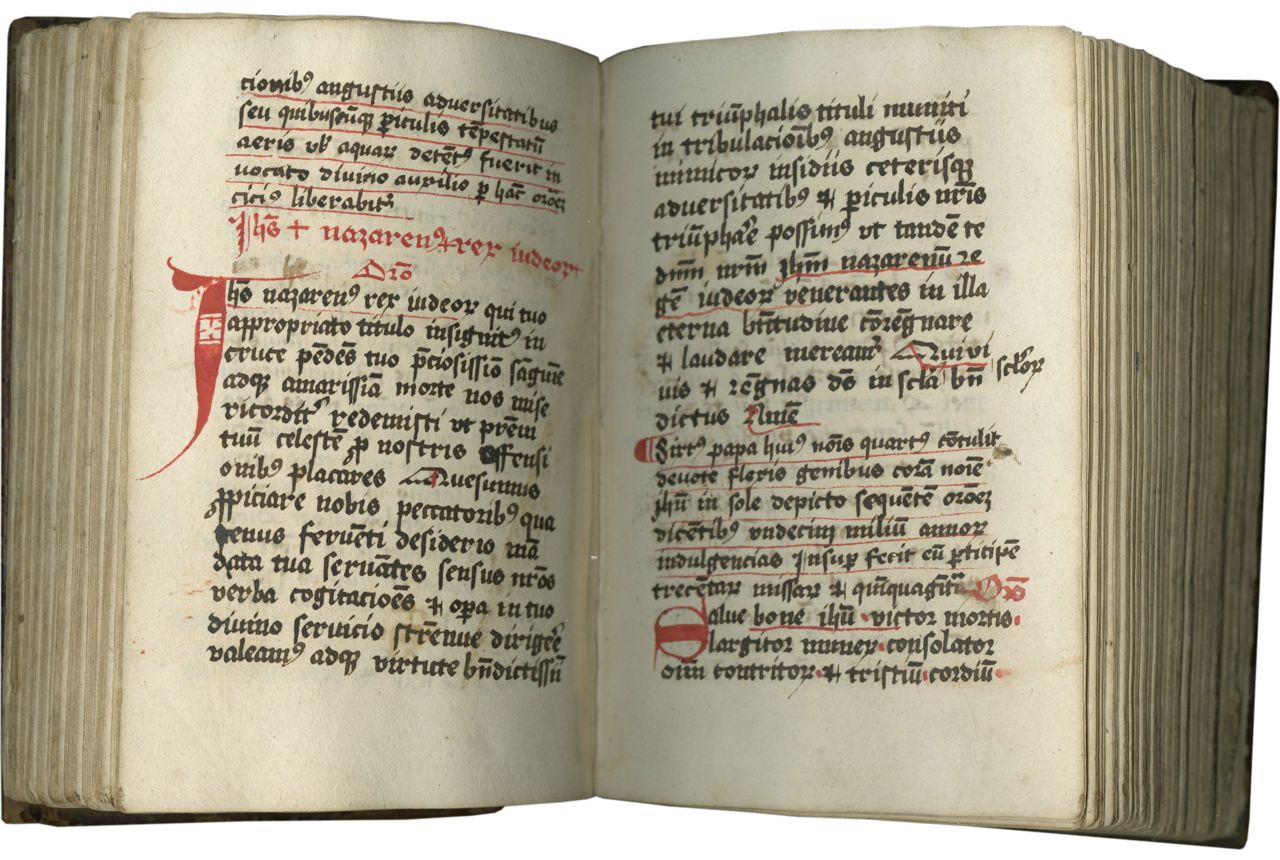 cionibꝰ angustiis adversitatibus
seu quibuscūqꝫ ꝑiculis tēpestatū
aeris vl̛ aquaꝝ detētꝰ fuerit in
vocato divino auxilio ꝑ hāc orōeꝫ
ciciꝰ liberabit᷑
Ihs̄ + nazarenꝰ rex iudeoꝝ
Orō
Ihs̄ nazarenꝰ rex iudeoꝝ qui tuo
appropriato titulo insignitꝰ in
cruce pēdēs tuo p̄ciosissīo sāguīe
adqꝫ amarissīa morte nos mise
ricordit᷑ redemisti vt p̄rem
tuū celestē ꝓ nostris offensi
onibꝰ placares Quesumus
ꝓpiciare nobis peccatoribꝰ qua
tenus fervēti desiderio mā
data tua servātes sensus nr̄os
verba cogitacioēs ⁊ oꝑa in tuo
divino servicio strēnue dirigē
valeamꝰ adqꝫ virtute bn̄dictissī
tui triūphalis tituli muniti
in tribulacioībꝰ angustiis
inimicoꝝ insidiis ceterisqꝫ
adversitatibꝰ ⁊ ꝑiculis nr̄is
triūphar̄e possimꝰ vt tandē te
dn̄m nr̄m Ihm̄ nazarenū re
gē iudeoꝝ venerantes in illa
eterna bt̄itudine cōregnare
⁊ laudare meream᷑ Qui vi
vis ⁊ rēgnas ds̄ in scl̄a bn̄ scl̄oꝝ
dictus Amē
Sixtꝰ papa huiꝰ nōis quartꝰ cōtulit
devote flexis genibus corā noīe
ihū in sole depicto sequētē orōeꝫ
dicētibꝰ vndecim miliū annoꝝ
indulgencias Insuꝑ fecit eū ꝑticipē
trecētaꝝ missaꝝ ⁊ quīquagīta Orō
Salve bone ihū victor mortis
largitor muneꝝ consolator
oīm contritoꝝ ⁊ tristiū cordiū